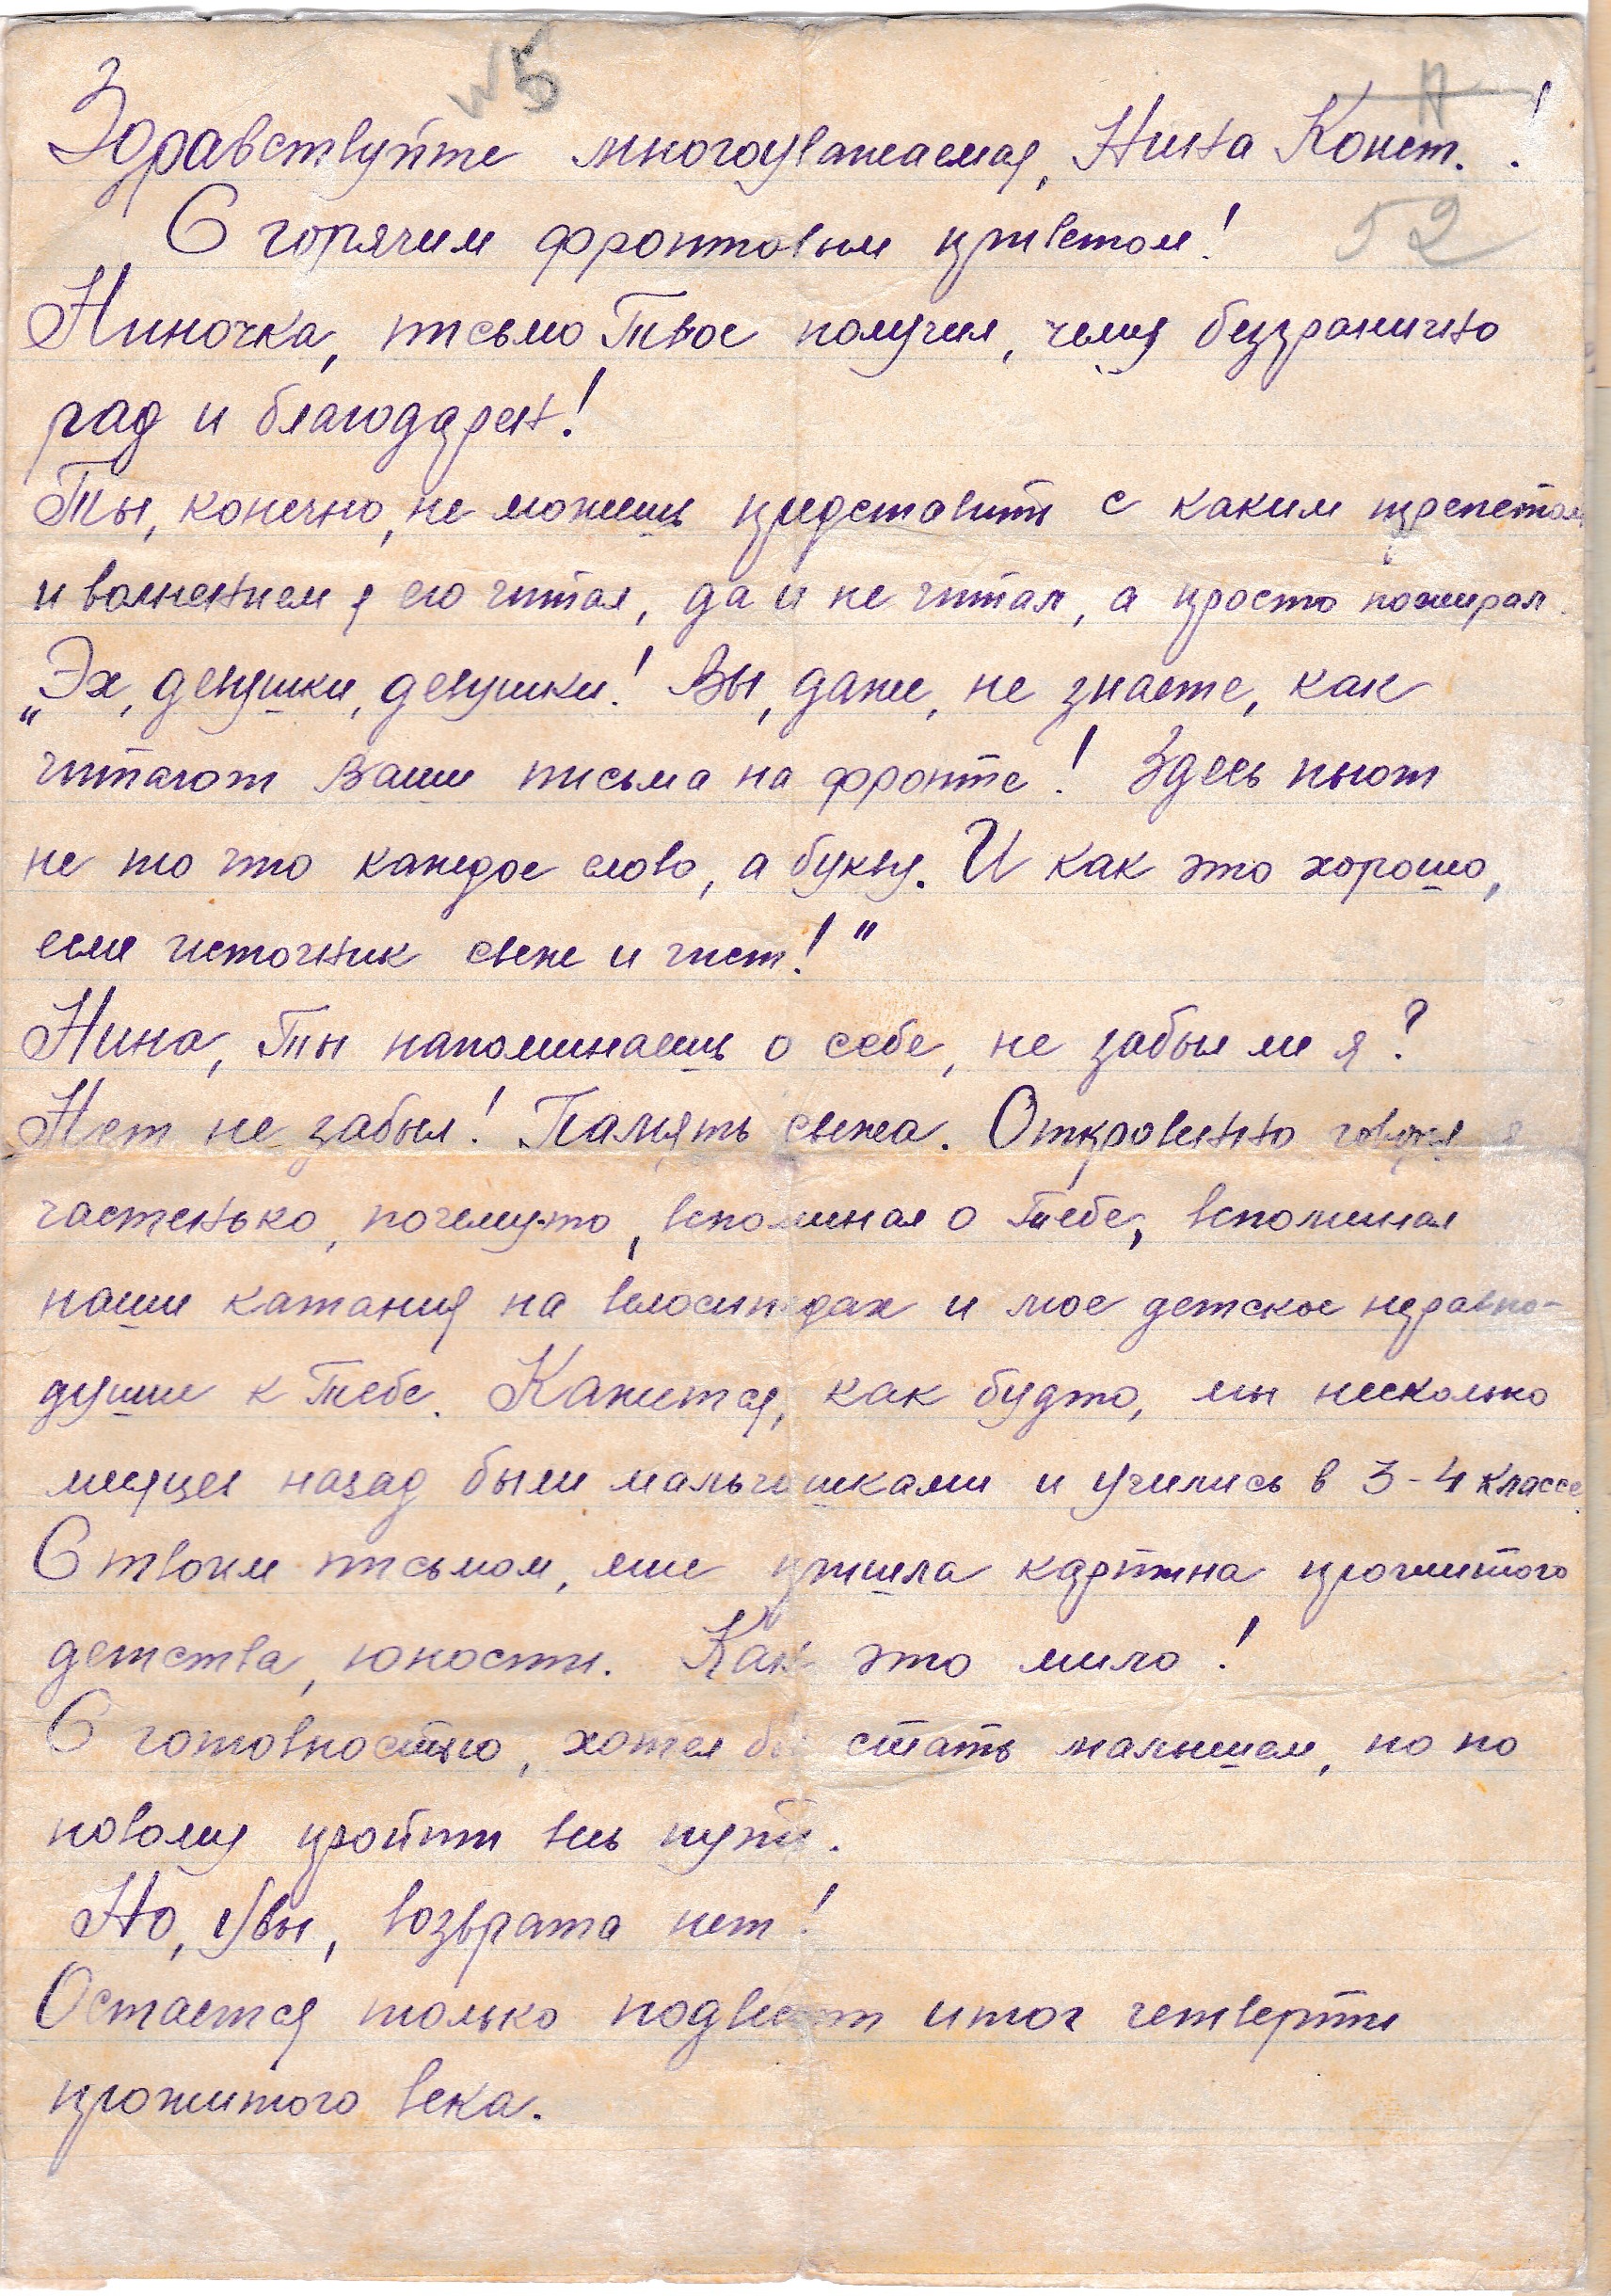 N 5
Здравствуйте многоуважаемая, Нина Конст. !
52
С горячим фронтовым приветом!
Ниночка, письмо Твое получил, чему безгранично
рад и благодарен!
Ты, конечно, не можешь представить с каким трепетом
и волнением я его читал, да и не читал, а просто пожирал.
„Эх, девушки, девушки! Вы, даже, не знаете, как
читают Ваши письма на фронте! Здесь пьют
не то что каждое слово, а букву. И как это хорошо,
если источник свеж и чист!"
Нина, Ты напоминаешь о себе, не забыл ли я?
Нет не забыл! Память свежа. Откровенно говоря я
частенько, почему-то, вспоминал о Тебе, вспоминал
наши катания на велосипедах и мое детское неравно-
душие к Тебе. Кажется, как будто, мы несколько
месяцев назад были мальчишками и учились в 3-4 классе.
С твоим письмом, мне пришла картина прожитого
детства, юности. Как это мило!
С готовностью, хотел бы стать малышем, но по
новому пройти весь путь.
Но, увы, возврата нет!
Остается только подвести итог четверти
прожитого века.